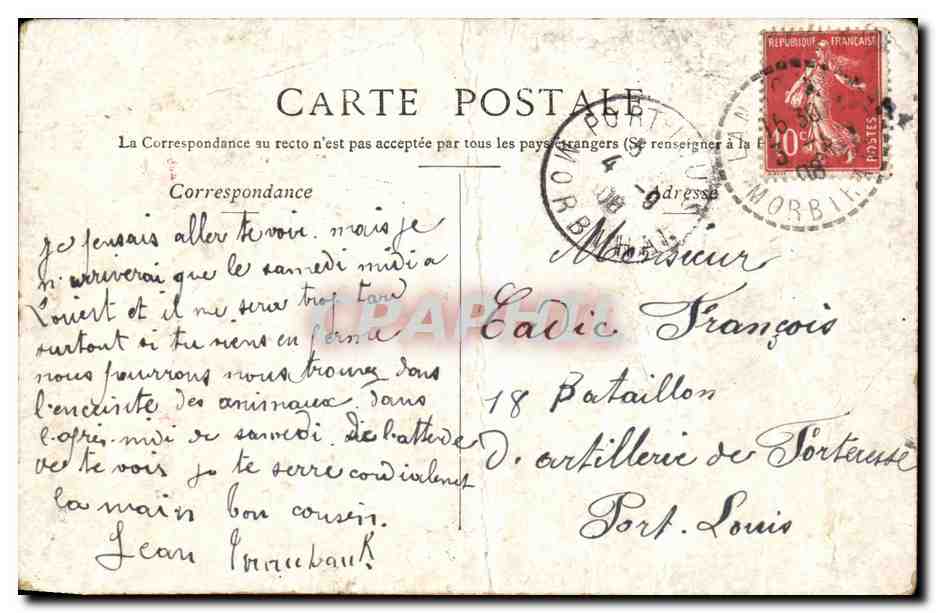 CARTE POSTALE
La Correspondance au recto n'est pas acceptée par tous les pays étrangers (Se renseigner à la
Correspondance
Adresse
REPUBLIQUE FRANÇAISE
10 c
POSTES
PORT-LOUIS
4 - 9
08
MORBIHAN
LAN
16 30
3
08
MORBIHAN
CPAPHIL
Je pensais aller te voir. mais je
n'arriverai que le samedi midi a
Lorient et il me sera trop tard
surtout si tu viens en ferme
nous pourrons nous trouvez dans
l'enceinte des animaux dans
l'après-midi de samedi. De l'attende
de te voir je te serre cordialment
la main bon cousin.
Jean
Monsieur
Cadic François
18 Bataillon
D'artillerie de Forteresse
Port-Louis